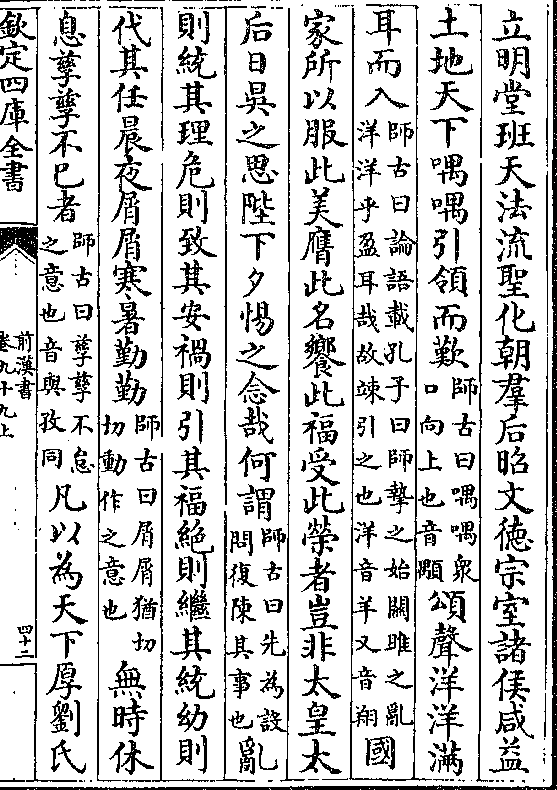 立明堂班天法流聖化朝羣后昭文德宗室諸侯咸益
土地天下喁喁引領而歎師古曰喁喁衆口向上也音顒頌聲洋洋滿
耳而入師古曰論語載孔子曰師摯之始關雎之亂洋洋乎盈耳哉故竦引之也洋音羊又音翔國
家所以服此美膺此名饗此福受此榮者豈非太皇太
后日昃之思陛下夕惕之念哉何謂師古曰先為設問復陳其事也亂
則統其理危則致其安禍則引其福絶則繼其統幼則
代其任晨夜屑屑寒暑勤勤師古曰屑屑猶切切動作之意也無時休
息孳孳不已者師古曰孳孳不怠之意也音與孜同凡以為天下厚劉氏
欽定四庫全書
前漢書
卷九十九上
四十二